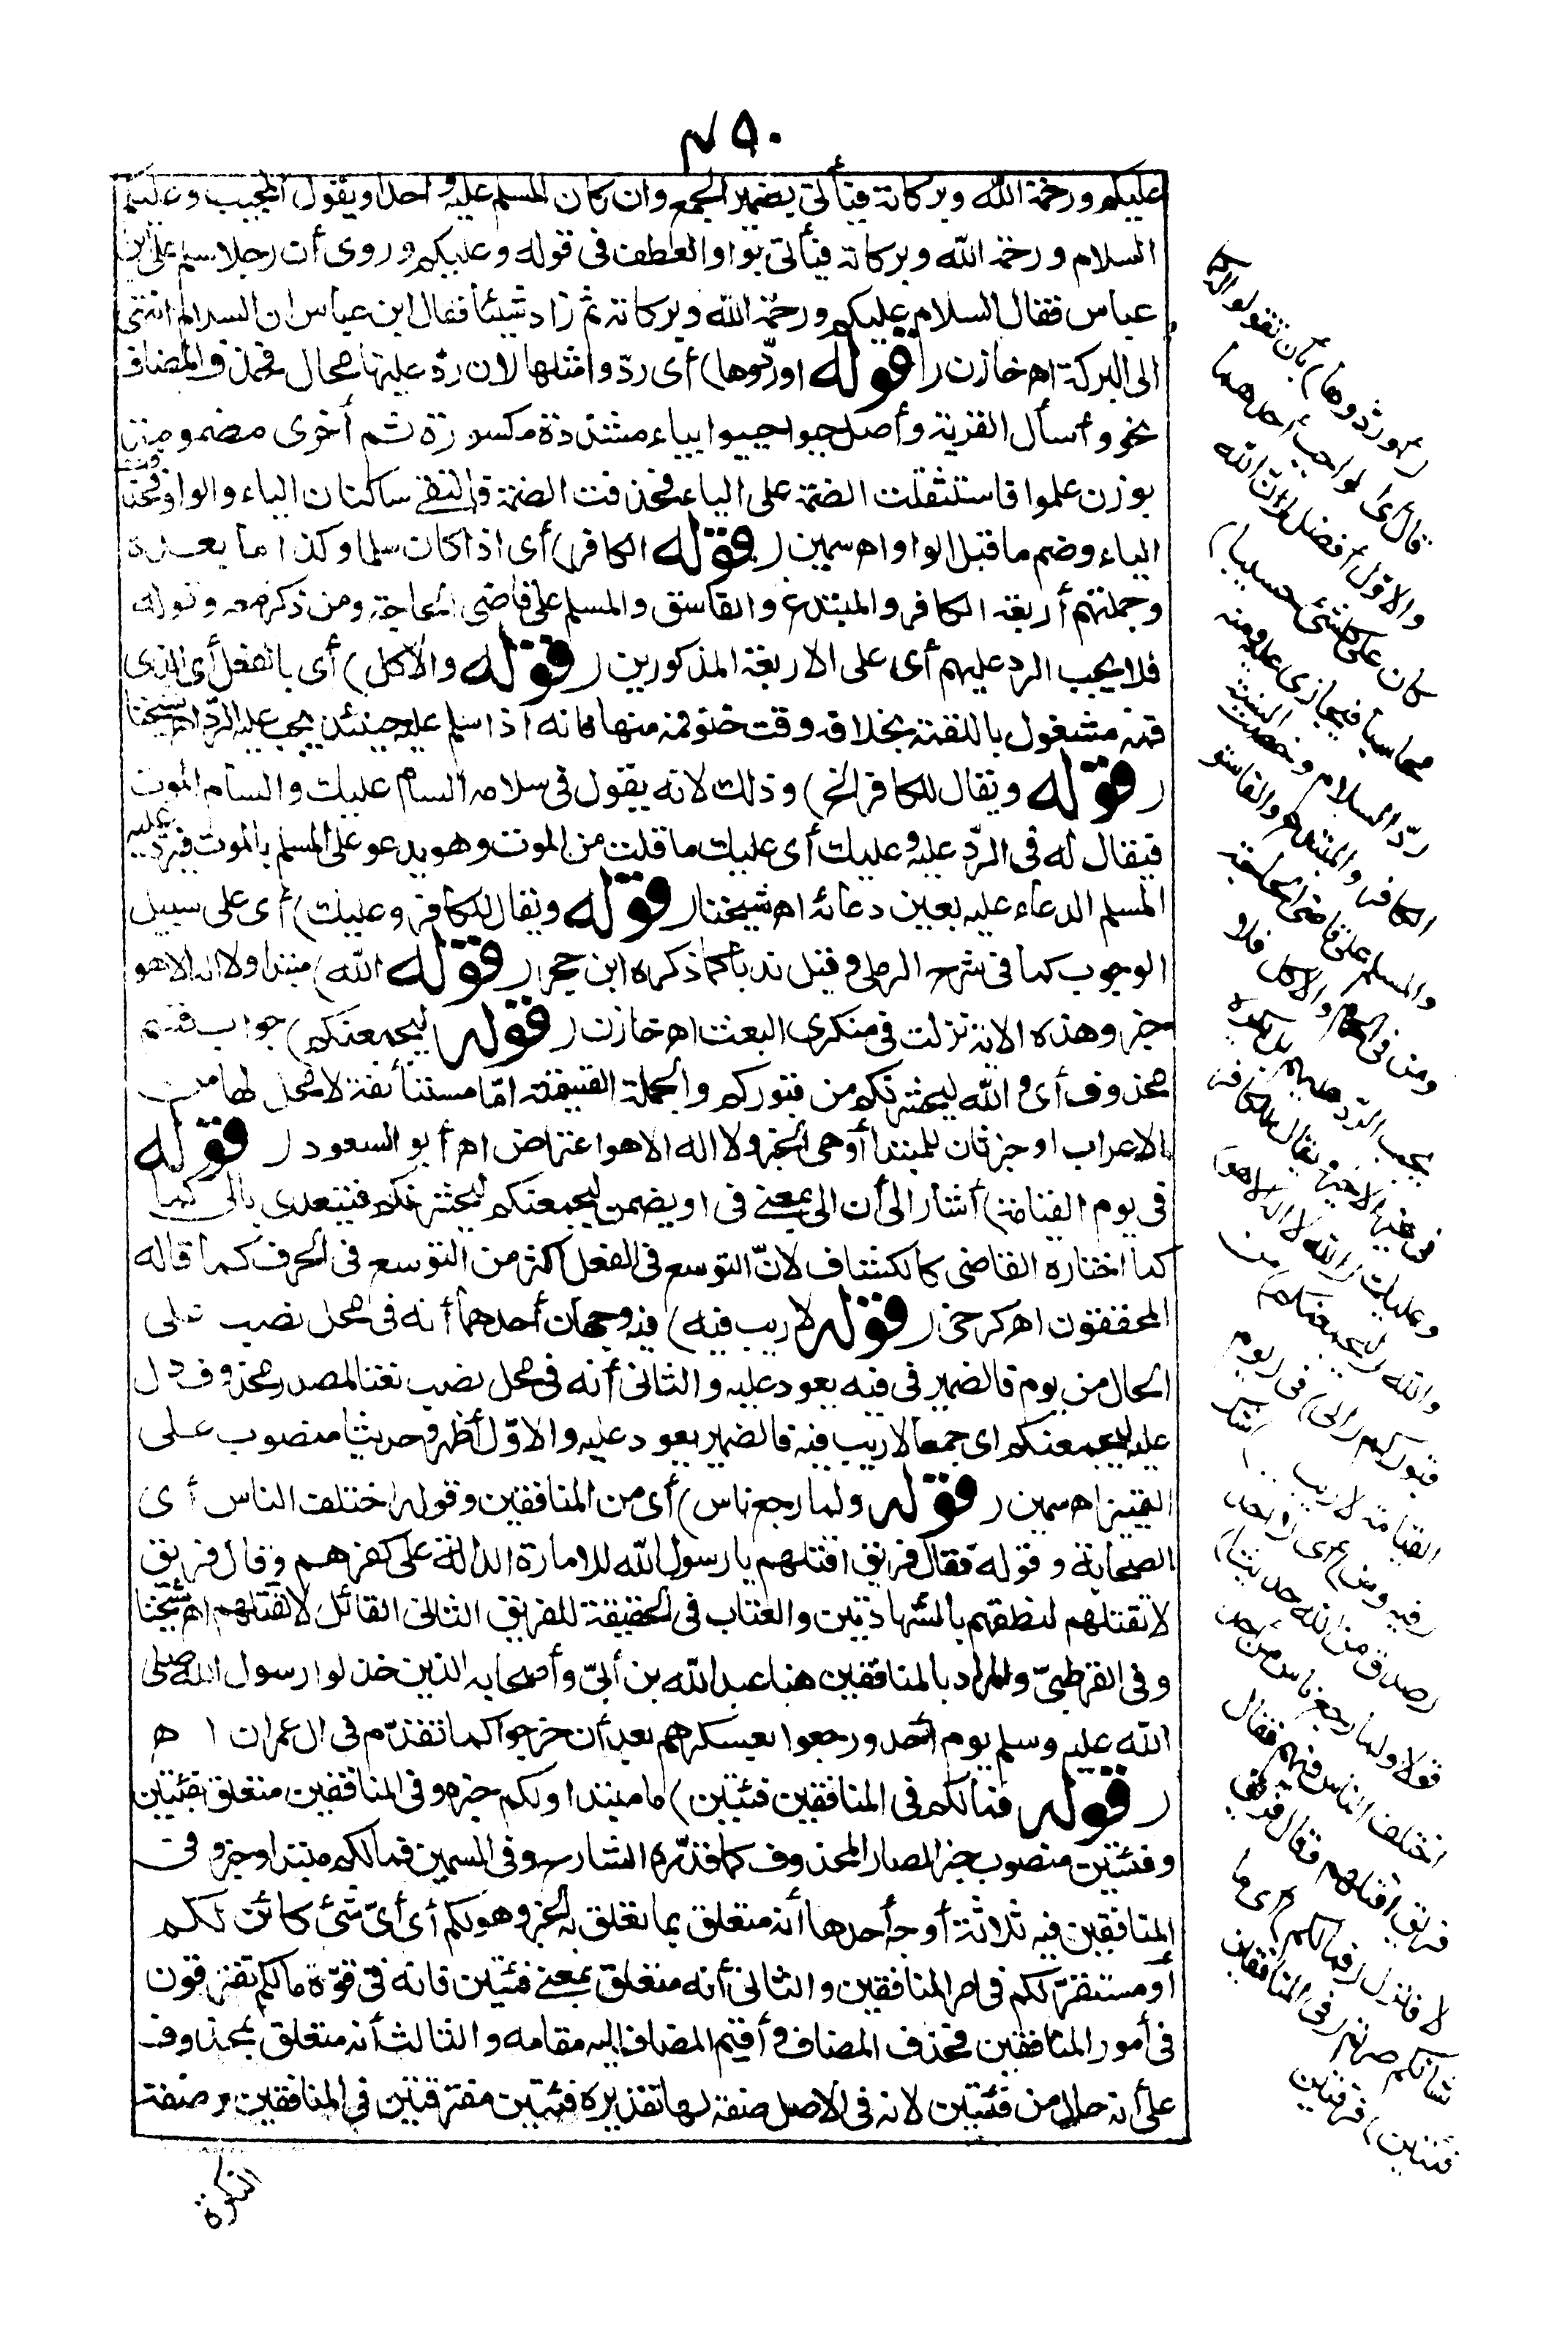 ٤٥٠
عليكم ورحمة الله وبركاته فيأتى بضمير الجمع وان كان المسلم عليه واحدا ويقول المجيب وعليكم
السلام ورحمة الله وبركاته فيأتى بواو العطف فى قوله وعليكم وروى أن رجلا سلم على ابن
عباس فقال السلام عليكم ورحمة الله وبركاته ثم زاد شيئا فقال ابن عباس ان السلام انتهى
الى البركة اه خازن (قوله اوردّوها) أى ردّوا مثلها لان ردّ عليها محال فحذف المضاف
نحو وأسأل القرية وأصل حيوا حييوا بياء مشددة مكسورة ثم أخرى مضمومة
بوزن علموا فاستثقلت الضمة على الياء فحذفت الضمة فالتقى ساكنان الياء والواو فحذفت
الياء وضم ما قبل الواو اه سمين (قوله الكافر) أى اذا كان مسلما وكذا ما بعده
وجملتهم أربعة الكافر والمبتدع والفاسق والمسلم على قاضى الحاجة ومن ذكر معه وقوله
فلا يجب الرد عليهم أى على الاربعة المذكورين (قوله والآكل) أى بالفعل أى الذى
فمه مشغول باللقمة بخلافه وقت خلو فمه منها فانه اذا سلم عليه حينئذ يجب عليه الردّ اه شيخنا
(قوله ويقال للكافر الخ) وذلك لانه يقول فى سلامه السام عليك والسام الموت
فيقال له فى الردّ عليه وعليك أى عليك ما قلت من الموت وهو يدعو على المسلم بالموت فيردّ عليه
المسلم الدعاء عليه بعين دعائه اه شيخنا (قوله ويقال للكافر وعليك) أى على سبيل
الوجوب كما فى شرح الرملى وقيل ندبا كما ذكره ابن حجر (قوله الله) مبتدا ولا اله الا هو
خبر وهذه الاية نزلت فى منكرى البعث اه خازن (قوله ليجمعنكم) جواب قسم
محذوف أى والله ليحشرنكم من قبوركم والجملة القسمية امّا مستأنفة لا محل لها من
الاعراب او خبر ثان للمبتدأ أو هى الخبر ولا اله الا هو اعتراض اه أبو السعود (قوله
فى يوم القيامة) أشار الى أن الى بمعنى فى او يضمن ليجمعنكم ليحشرنكم فيتعدى بالى كما
كما اختاره القاضى كالكشاف لانّ التوسع فى الفعل أكثر من التوسع فى الحرف كما قاله
المحققون اه كرخى (قوله لا ريب فيه) فيه وجهان أحدهما أنه فى محل نصب على
الحال من يوم فالضمير فى فيه يعود عليه والثانى أنه فى محل نصب نعتا لمصدر محذوف دل
عليه ليجمعنكم اى جمعا لا ريب فيه فالضمير يعود عليه والاوّل أظهر وحديثا منصوب على
التمييز اه سمين (قوله ولما رجع ناس) أى من المنافقين وقوله اختلف الناس أى
الصحابة وقوله فقال فريق اقتلهم يا رسول الله للامارة الدالة على كفرهم وقال فريق
لا تقتلهم لنطقهم بالشهادتين والعتاب فى الحقيقة للفريق الثانى القائل لا تقتلهم اه شيخنا
وفى القرطبىّ والمراد بالمنافقين هنا عبد الله بن أبىّ وأصحابه الذين خذلوا رسول الله صلى
الله عليه وسلم يوم أحد ورجعوا بعسكرهم بعد أن خرجوا كما تقدّم فى ال عمران ا ه
(قوله فمالكم فى المنافقين فئتين) ما مبتدا ولكم خبره وفى المنافقين متعلق بفئتين
وفئتين منصوب خبر لصار المحذوف كما قدّره الشارح وفى السمين فمالكم مبتدا وخبر وفى
المنافقين فيه ثلاثة أوجه أحدها أنه متعلق بما تعلق به الخبر وهو لكم أى أىّ شئ كائن لكم
أو مستقرّ لكم فى امر المنافقين والثانى أنه متعلق بمعنى فئتين فانه فى قوّة مالكم تفترقون
فى أمور المنافقين فحذف المضاف وأقيم المضاف اليه مقامه والثالث أنه متعلق بمحذوف
على أنه حال من فئتين لانه فى الاصل صفة لها تقديره فئتين مفترقتين فى المنافقين وصفة
النكرة
(أو ردوها) بأن تقولوا كما
قال أى الواجب أحدهما
والاوّل أفضل (ان الله
كان على كل شئ حسيبا)
محاسبا فيجازى عليه ومنه
ردّ السلام وخصت السنة
الكافر والمبتدع والفاسق
والمسلم على قاضى الحاجة
ومن فى الحمام والآكل فلا
يجب الرّد عليهم بل يكره
فى غير الاخير ويقال للكافر
وعليك (الله لا اله الا هو)
والله (ليجمعنكم) من
قبوركم (الى) فى (يوم
القيامة لا ريب) شك
(فيه ومن) أى لا أحد
(اصدق من الله حديثا)
قولا ولما رجع ناس من أحد
اختلف الناس فيهم فقال
فريق اقتلهم وقال فريق
لا فنزل (فمالكم) أى ما
شأنكم صرتم (فى المنافقين
فئتين) فرقتين